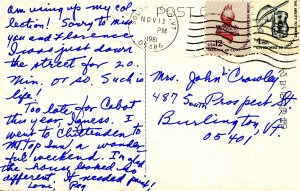 am using up my col-
lection! Sorry to miss
you and Florence
I was just down
the street for 20
Min. or so. Such is
life!
Too late for Cabot
this year, I guess. I
went to Chittenden to
Mt. Top Inn, a wonder-
ful weekend. I'm glad
the house looked so
different. It needed paint!
Love, Peg
POST C
NOV 12
PM
1981
USA 12c
Mrs. John Crowley
487 South Prospect St
Burlington, Vt.
05401